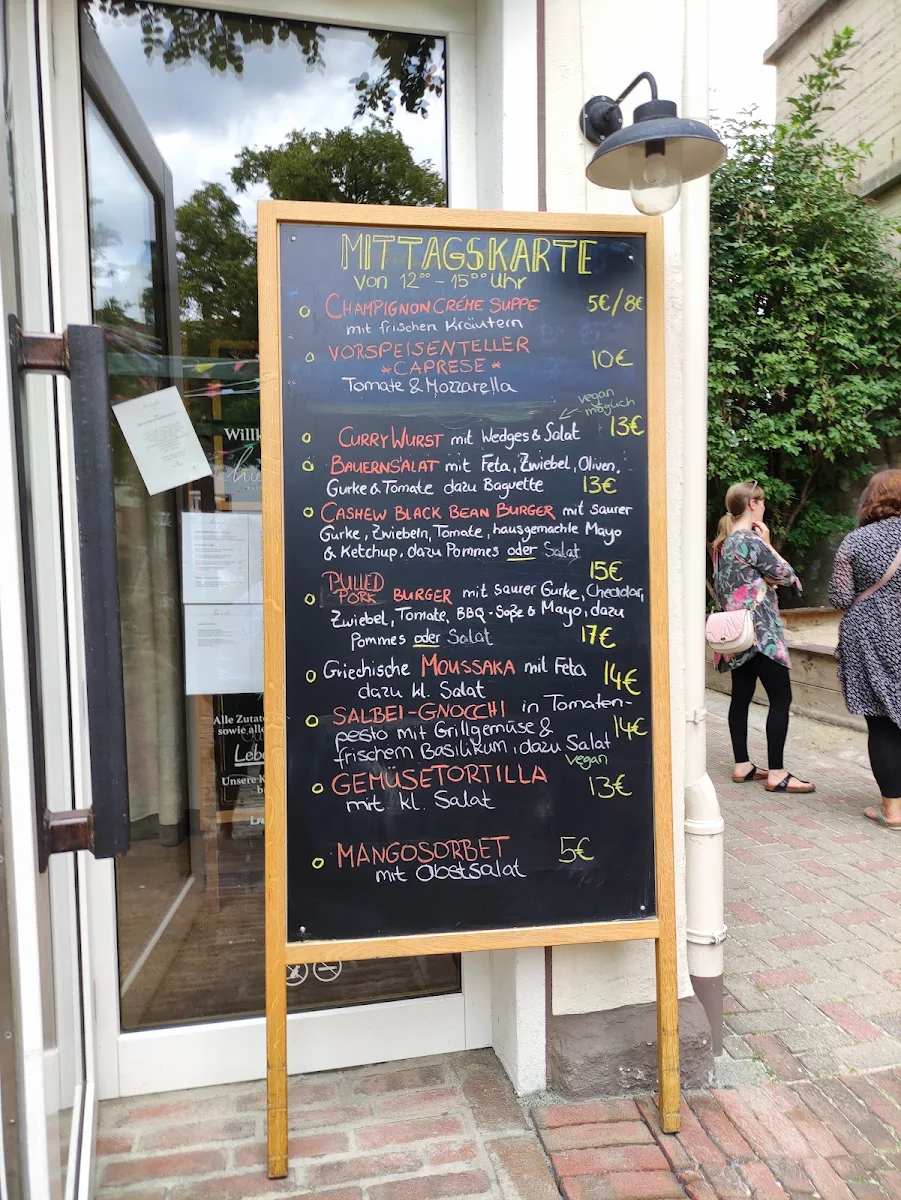 MITTAGSKARTE
von 12⁰⁰ - 15⁰⁰ Uhr
CHAMPIGNON CRÉME SUPPE 5€/8€
mit frischen Kräutern
VORSPEISENTELLER
*CAPRESE* 10€
Tomate & Mozzarella
vegan
möglich
CURRYWURST mit Wedges & Salat 13€
BAUERNSALAT mit Feta, Zwiebel, Oliven,
Gurke & Tomate dazu Baguette 13€
CASHEW BLACK BEAN BURGER mit saurer
Gurke, Zwiebeln, Tomate, hausgemachte Mayo
& Ketchup, dazu Pommes oder Salat
15€
PULLED
PORK BURGER mit saurer Gurke, Cheddar,
Zwiebel, Tomate, BBQ-Soße & Mayo, dazu
Pommes oder Salat 17€
Griechische MOUSSAKA mit Feta 14€
dazu kl. Salat
SALBEI-GNOCCHI in Tomaten-
pesto mit Grillgemüse & 14€
frischem Basilikum, dazu Salat
vegan
GEMÜSETORTILLA 13€
mit kl. Salat
MANGOSORBET 5€
mit Obstsalat
Willk
Alle Zutat
sowie alle
Leb
Unsere K